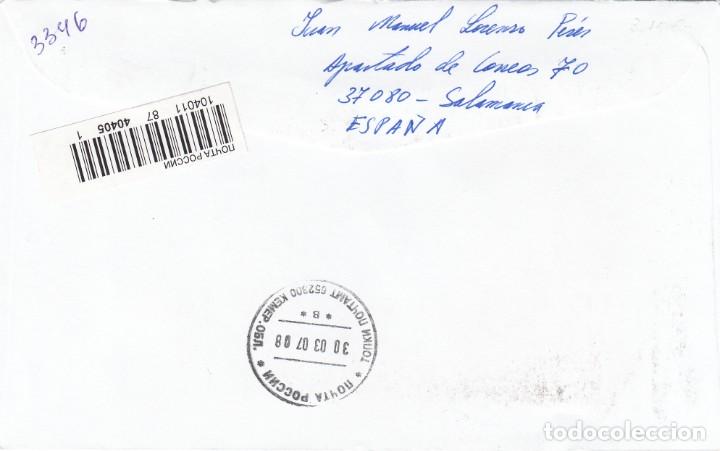 3346
Juan Manuel Lorenzo Pérez
Apartado de Correos 70
37080 - Salamanca
ESPAÑA
ПОЧТА РОССИИ
104011 87 40405 1
* ПОЧТА РОССИИ * ТОПКИ ПОЧТАМТ 652300 КЕМЕР.ОБЛ.
* В *
30 03 07 08
todocoleccion
todocoleccion.net